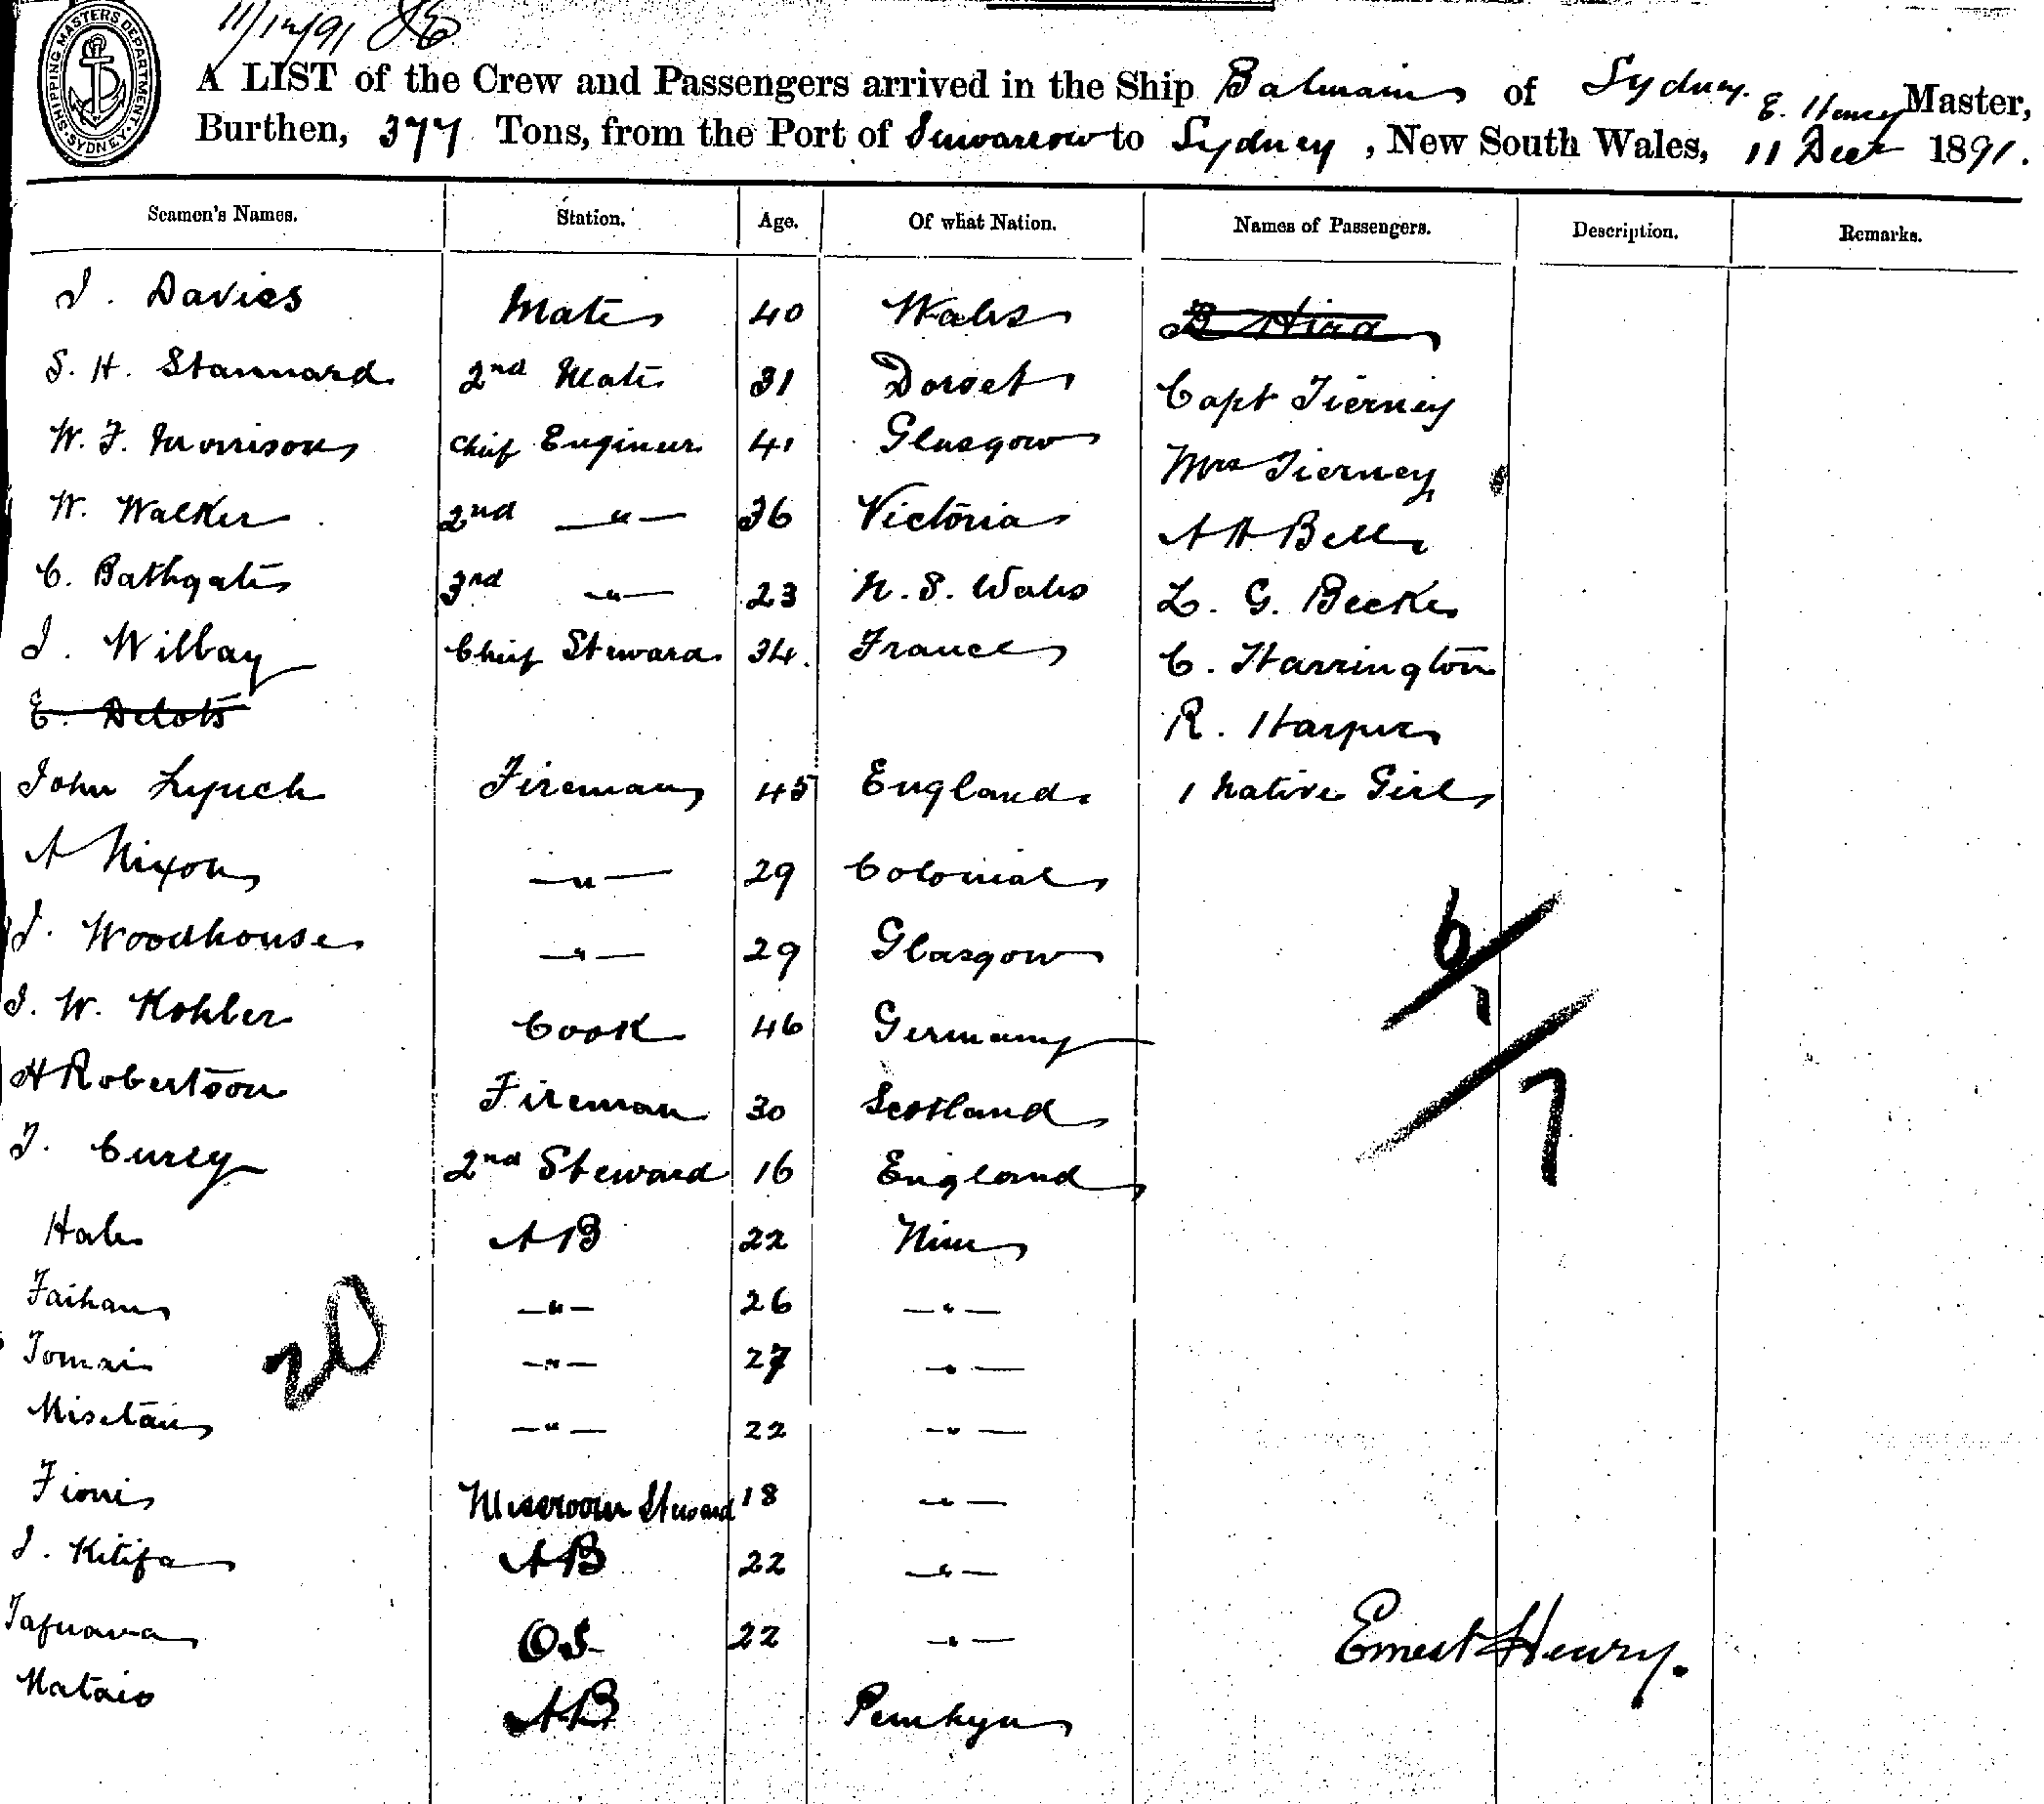 11/12/91
SHIPPING MASTERS DEPARTMENT. SYDNEY.
A LIST of the Crew and Passengers arrived in the Ship Balmain of Sydney. E. Henry Master,
Burthen, 377 Tons, from the Port of Suwarrow to Sydney, New South Wales, 11 Decr 1891.
Seamen's Names. Station. Age. Of what Nation. Names of Passengers. Description. Remarks.
J. Davies Mate 40 Wales
S. H. Stannard 2nd Mate 31 Dorset Capt Tierney
W. F. Morrison Chief Engineer 41 Glasgow Mrs Tierney
W. Walker 2nd —"— 36 Victoria A H Bell
C. Bathgate 3rd —"— 23 N. S. Wales L. G. Becke
J. Wilbay Chief Steward 34. France C. Harrington
E. R. Harper
John Lynch Fireman 45 England 1 Native Girl
A Nixon —"— 29 Colonial
J. Woodhouse —"— 29 Glasgow 6
J. W. Kohler Cook 46 Germany 1
A Robertson Fireman 30 Scotland 7
T. Curry 2nd Steward 16 England
Hale AB 22 Niue
Faihau —"— 26 —"—
20
—"— 27 —"—
—"— 22 —"—
Fioni Messroom Steward 18 —"—
J. Kitifa AB 22 —"—
OS 22 —"— Ernest Henry.
Mataio AB Penrhyn